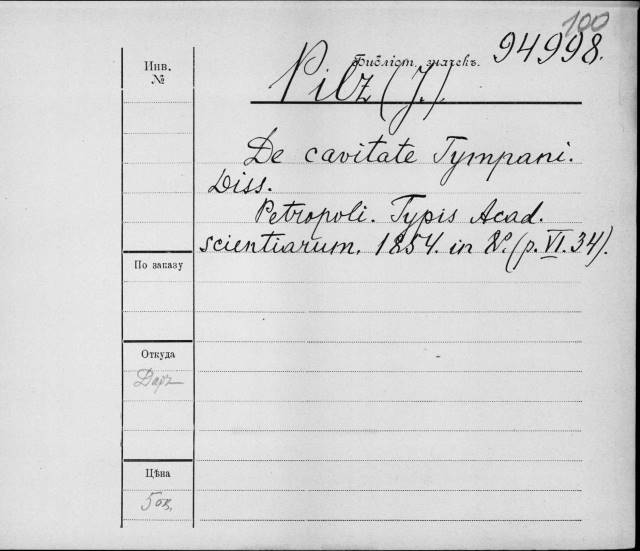 100
Библіот. значекъ. 94998.
Инв.
№
Pilz (J.)
De cavitate Tympani.
Diss.
Petropoli. Typis Acad.
scientiarum. 1854. in 8º. (p. VI. 34).
По заказу
Откуда
Даръ
Цѣна